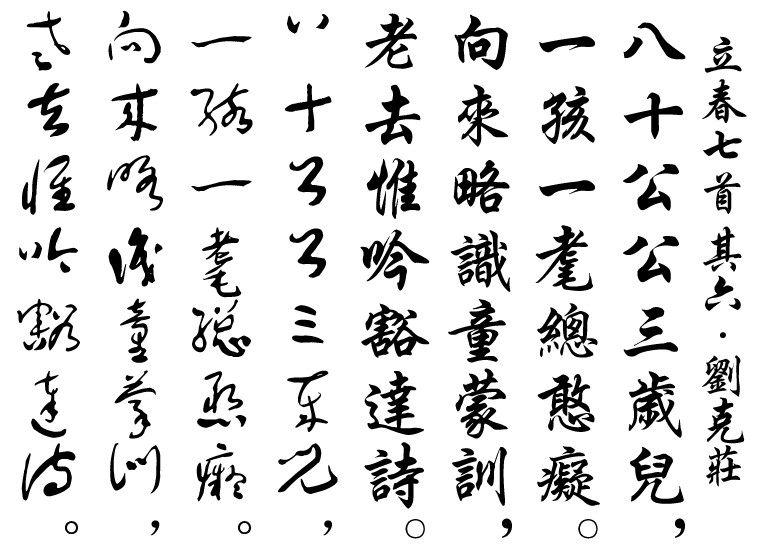 立春七首 其六·劉克莊
八十公公三歲兒，
一孩一耄總憨癡。
向來略識童蒙訓，
老去惟吟豁達詩。
八十公公三歲兒，
一孩一耄總憨癡。
向來略識童蒙訓，
老去惟吟豁達詩。